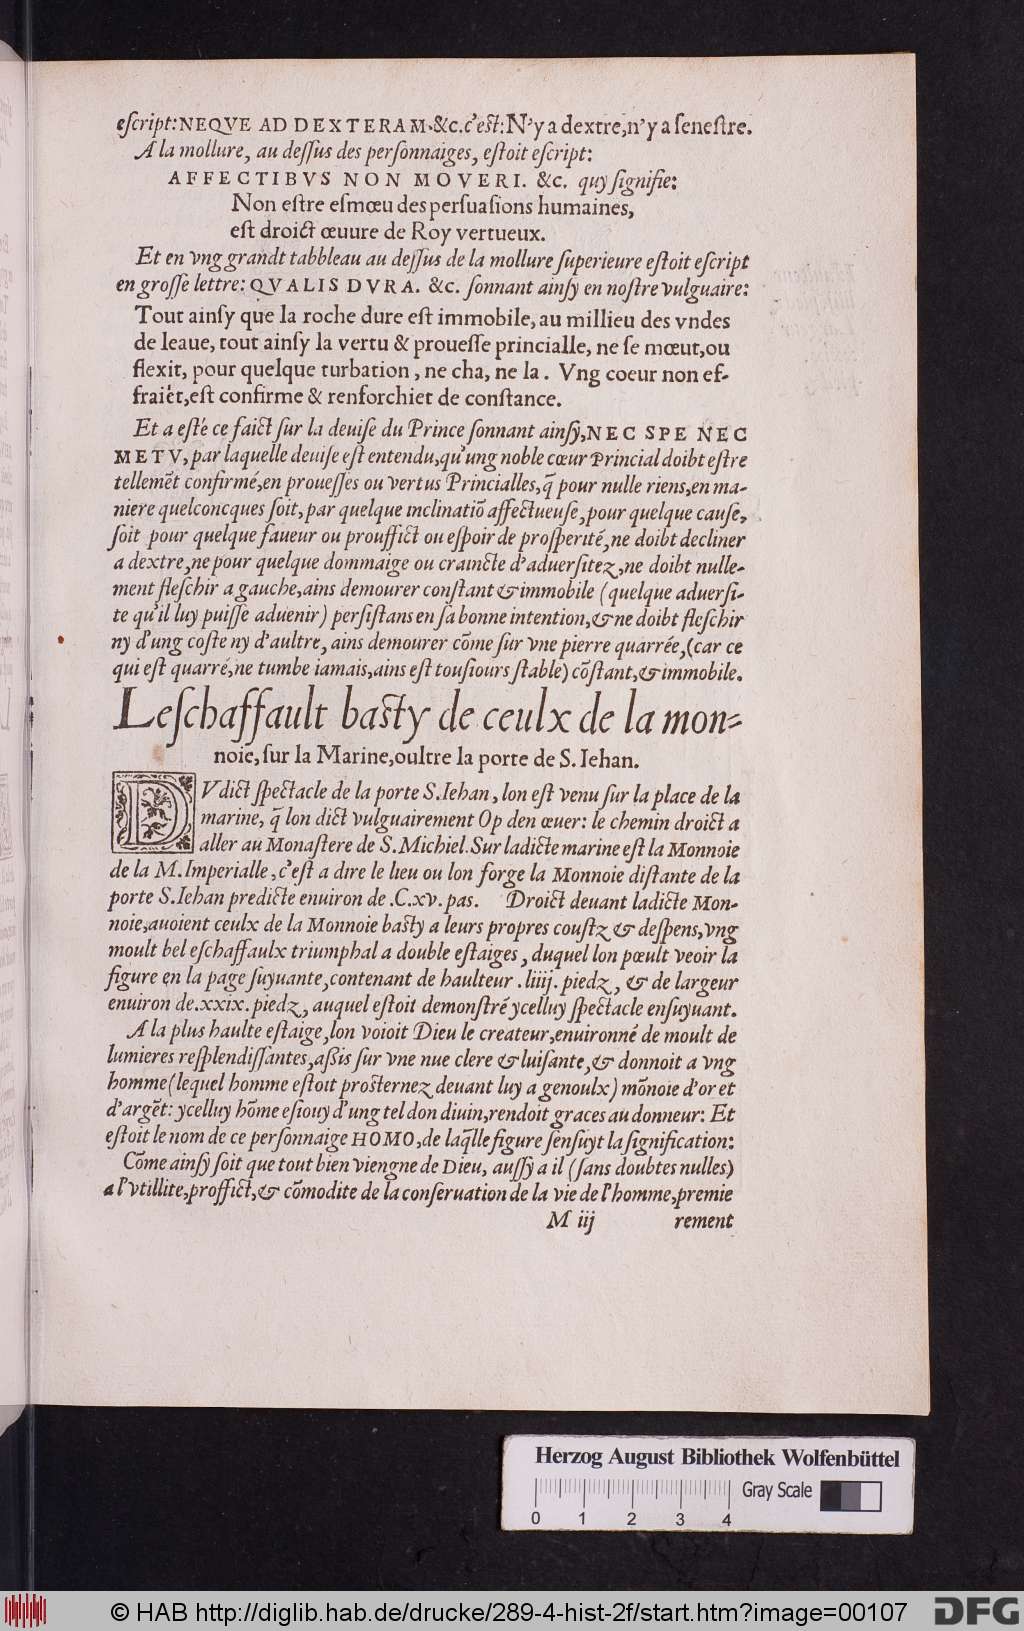 eſcript: NEQVE AD DEXTERAM. &c. c'eſt: N'y a dextre, n'y a ſeneſtre.
A la mollure, au deſſus des perſonnaiges, eſtoit eſcript:
AFFECTIBVS NON MOVERI. &c. quy ſignifie:
Non eſtre eſmœu des perſuaſions humaines,
eſt droict œuure de Roy vertueux.
Et en vng grandt tabbleau au deſſus de la mollure ſuperieure eſtoit eſcript
en groſſe lettre: QVALIS DVRA. &c. ſonnant ainſy en noſtre vulguaire:
Tout ainſy que la roche dure eſt immobile, au millieu des vndes
de leaue, tout ainſy la vertu & proueſſe princialle, ne ſe mœut, ou
flexit, pour quelque turbation, ne cha, ne la. Vng coeur non ef-
fraiét, eſt confirme & renforchiet de conſtance.
Et a eſté ce faict ſur la deuiſe du Prince ſonnant ainſy, NEC SPE NEC
METV, par laquelle deuiſe eſt entendu, qu'ung noble cœur Princial doibt eſtre
tellemẽt confirmé, en proueſſes ou vertus Princialles, q̃ pour nulle riens, en ma-
niere quelconcques ſoit, par quelque inclinatiõ affectueuſe, pour quelque cauſe,
ſoit pour quelque faueur ou prouffict ou eſpoir de proſperité, ne doibt decliner
a dextre, ne pour quelque dommaige ou craincte d'aduerſitez, ne doibt nulle-
ment fleſchir a gauche, ains demourer conſtant & immobile (quelque aduerſi-
te qu'il luy puiſſe aduenir) perſiſtans en ſa bonne intention, & ne doibt fleſchir
ny d'ung coſte ny d'aultre, ains demourer cõme ſur vne pierre quarrée, (car ce
qui eſt quarré, ne tumbe iamais, ains eſt touſiours ſtable) cõſtant, & immobile.
Leſchaffault baſty de ceulx de la mon-
noie, ſur la Marine, oultre la porte de S. Iehan.
DVdict ſpectacle de la porte S. Iehan, lon eſt venu ſur la place de la
marine, q̃ lon dict vulguairement Op den œuer: le chemin droict a
aller au Monaſtere de S. Michiel. Sur ladicte marine eſt la Monnoie
de la M. Imperialle, c'eſt a dire le lieu ou lon forge la Monnoie diſtante de la
porte S. Iehan predicte enuiron de .C.xv. pas. Droict deuant ladicte Mon-
noie, auoient ceulx de la Monnoie baſty a leurs propres couſtz & deſpens, vng
moult bel eſchaffaulx triumphal a double eſtaiges, duquel lon pœult veoir la
figure en la page ſuyuante, contenant de haulteur .liiij. piedz, & de largeur
enuiron de .xxix. piedz, auquel eſtoit demonſtré ycelluy ſpectacle enſuyuant.
A la plus haulte eſtaige, lon voioit Dieu le createur, enuironné de moult de
lumieres reſplendiſſantes, aßis ſur vne nue clere & luiſante, & donnoit a vng
homme (lequel homme eſtoit proſternez deuant luy a genoulx) mõnoie d'or et
d'argẽt: ycelluy hõme eſiouy d'ung tel don diuin, rendoit graces au donneur: Et
eſtoit le nom de ce perſonnaige HOMO, de laq̃lle figure ſenſuyt la ſignification:
Cõme ainſy ſoit que tout bien viengne de Dieu, auſſy a il (ſans doubtes nulles)
a l'vtillite, proffict, & cõmodite de la conſeruation de la vie de l'homme, premie
M iij rement
Herzog August Bibliothek Wolfenbüttel
Gray Scale
0 1 2 3 4
© HAB http://diglib.hab.de/drucke/289-4-hist-2f/start.htm?image=00107
DFG